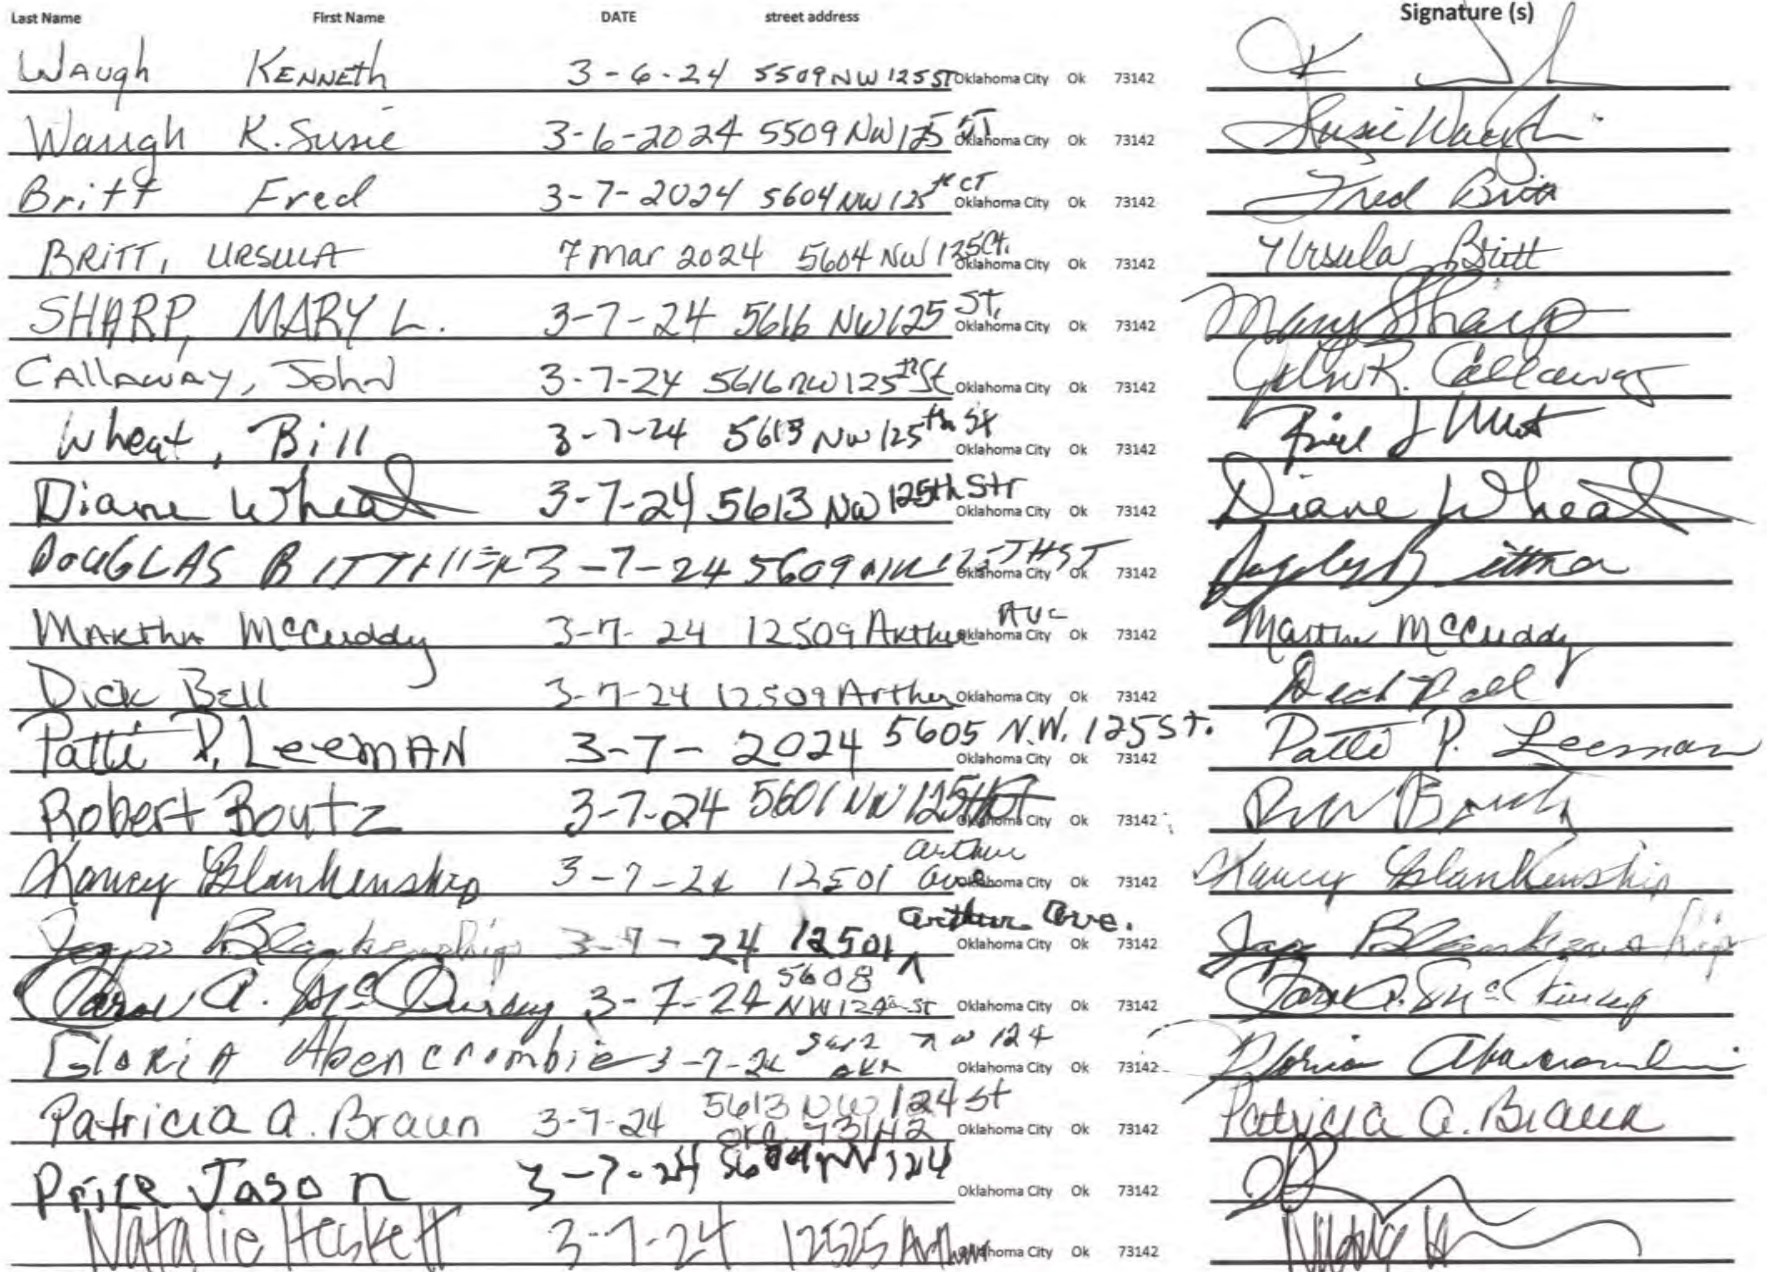 Last Name First Name DATE street address Signature (s)
Waugh Kenneth 3-6-24 5509 NW 125 ST Oklahoma City Ok 73142
Waugh K. Susie 3-6-2024 5509 NW 125 ST Oklahoma City Ok 73142 Susie Waugh
Britt Fred 3-7-2024 5604 NW 125th CT Oklahoma City Ok 73142 Fred Britt
BRITT, URSULA 7 Mar 2024 5604 NW 125 Ct. Oklahoma City Ok 73142 Ursula Britt
SHARP, MARY L. 3-7-24 5616 NW 125 ST. Oklahoma City Ok 73142 Mary Sharp
Callaway, John 3-7-24 5616 NW 125th St Oklahoma City Ok 73142 John R. Callaway
Wheat, Bill 3-7-24 5613 NW 125th St Oklahoma City Ok 73142 Bill J Wheat
Diane Wheat 3-7-24 5613 NW 125th Str Oklahoma City Ok 73142 Diane Wheat
DOUGLAS BITTNER 3-7-24 5609 NW 125 TH ST Oklahoma City Ok 73142 Douglas Bittner
Martha McCuddy 3-7-24 12509 Arthur Ave Oklahoma City Ok 73142 Martha McCuddy
Dick Bell 3-7-24 12509 Arthur Oklahoma City Ok 73142 Dick Bell
Patti P. Leeman 3-7-2024 5605 N.W. 125 St. Oklahoma City Ok 73142 Patti P. Leeman
Robert Boutz 3-7-24 5601 NW 125th Oklahoma City Ok 73142
Nancy Blankenship 3-7-24 12501 Arthur Ave Oklahoma City Ok 73142 Nancy Blankenship
Blankenship 3-7-24 12501 Arthur Ave. Oklahoma City Ok 73142 Blankenship
Carol A. 3-7-24 5608 NW 124th St Oklahoma City Ok 73142
Gloria Abercrombie 3-7-24 NW 124 OKC Oklahoma City Ok 73142 Gloria Abercrombie
Patricia A. Braun 3-7-24 5613 NW 124 St 73142 Oklahoma City Ok 73142 Patricia A. Braun
Price Jason 3-7-24 NW 124 Oklahoma City Ok 73142
Natalie Heskett 3-7-24 12525 Arthur Oklahoma City Ok 73142